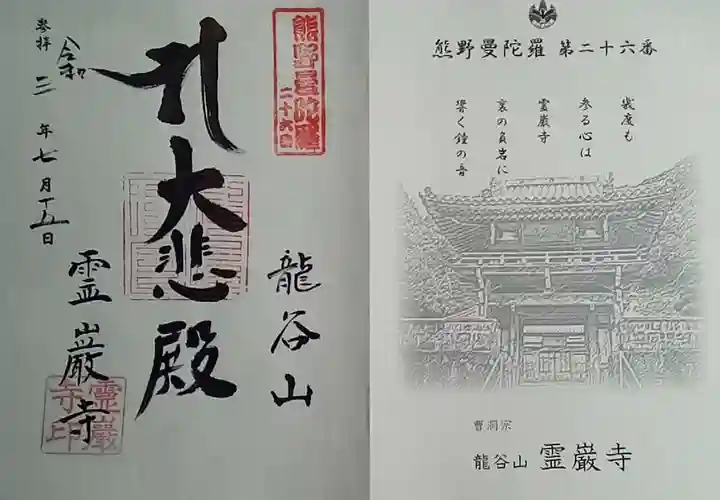 熊野曼陀羅
二十六番
龍谷山
大悲殿
参拝
令和三年七月十五日
霊巌寺
霊巌寺印
熊野曼陀羅 第二十六番
幾度も
参る心は
霊巌寺
裏の負岩に
響く鐘の音
曹洞宗
龍谷山 霊巌寺